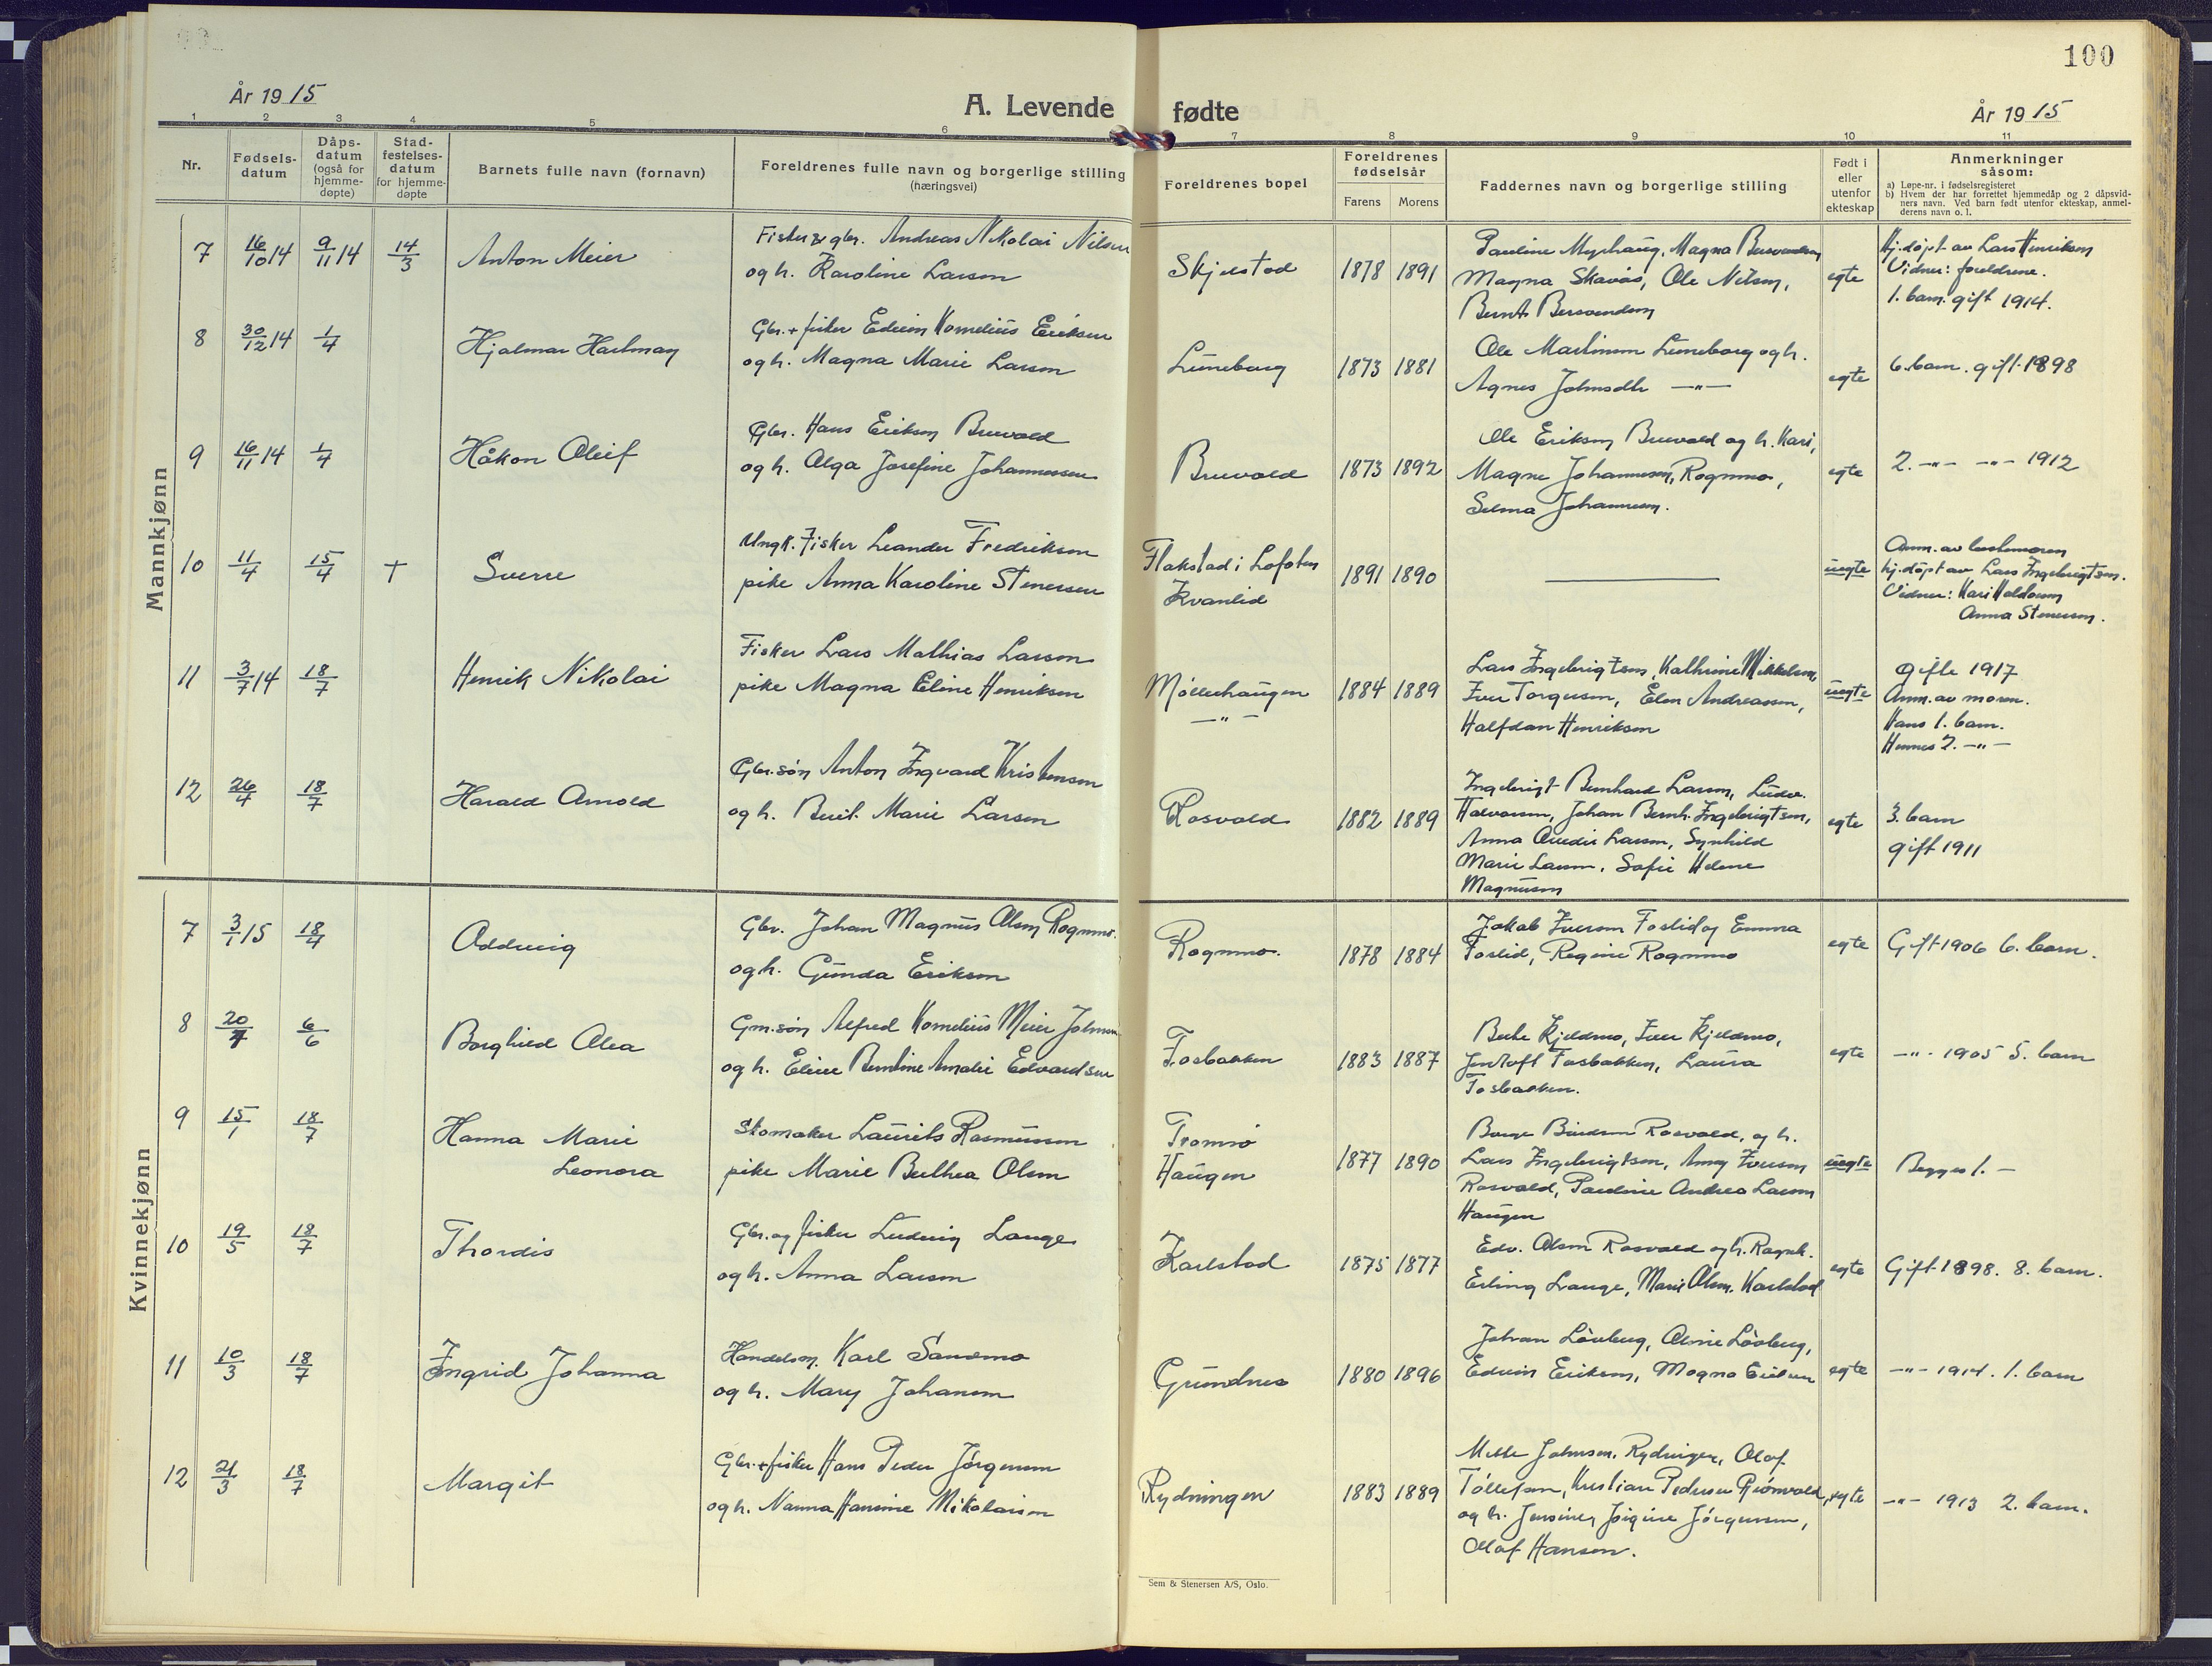 100
År 1915
A. Levende fødte
År 1915
1 2 3 4 5 6 7 8 9 10 11
Nr.
Fødsels-
datum
Dåps-
datum
(også for
hjemme-
døpte)
Stad-
festelses-
datum
for hjemme-
døpte
Barnets fulle navn (fornavn)
Foreldrenes fulle navn og borgerlige stilling
(næringsvei)
Foreldrenes bopel
Foreldrenes
fødselsår
Farens Morens
Faddernes navn og borgerlige stilling
Født i
eller
utenfor
ekteskap
Anmerkninger
såsom:
a) Løpe-nr. i fødselsregisteret
b) Hvem der har forrettet hjemmedåp og 2 dåpsvid-
ners navn. Ved barn født utenfor ekteskap, anmel-
derens navn o. l.
Mannkjønn
7 16/10 14 9/11 14 14/3 Anton Meier
Fisker & gbr. Andreas Nikolai Nilsen
og h. Karoline Larsen
Skjelstad 1878 1891
Pauline Myrhaug, Magna Bersvendsen
Magna Skavås, Ole Nilsen,
Bernt Bersvendsen
egte
Hj.døpt av Lars Henriksen
Vidner: foreldrene.
1. barn. gift 1914.
8 30/12 14 1/4 Hjalmar Hartman
Gbr. + fisker Edvin Kornelius Eriksen
og h. Magna Marie Larsen
Luneborg 1873 1881
Ole Martinsen Luneborg og h.
Agnes Johnsdtr —"—
egte
6. barn. gift 1898
9 16/11 14 1/4 Håkon Oleif
Gbr. Hans Eriksen Bruvold
og h. Olga Josefine Johannessen
Bruvold 1873 1892
Ole Eriksen Bruvold og h. Kari,
Magne Johannesen, Rognmo,
Selma Johannesen.
egte
2. —"— —"— 1912
10 11/4 15/4 + Sverre
Ungk. Fisker Leander Fredriksen
pike Anna Karoline Stenersen
Flakstad i Lofoten
Kvanlid
1891 1890
uegte
Anm. av bestemoren
hj.døpt av Lars Ingebrigtsen.
Vidner: Kari Haldorsen
Anna Stenersen.
11 3/7 14 18/7 Henrik Nikolai
Fisker Lars Mathias Larsen
pike Magna Eline Henriksen
Møllerhaugen
—"—
1884 1889
Lars Ingebrigtsen, Kathrine Mikkelsen,
Iver Torgersen, Elen Andreassen,
Halfdan Henriksen
uegte
Gifte 1917
Anm. av moren.
Hans 1. barn.
Hennes 2. —"—
12 26/4 18/7 Harald Arnold
Gbr.søn Anton Ingvard Kristensen
og h. Berit Marie Larsen
Rosvold 1882 1889
Ingebrigt Bernhard Larsen, Ludv.
Halvorsen, Johan Bernh. Ingebrigtsen,
Anna Larsen, Synhild
Marie Larsen, Sofie Helene
Magnusen
egte
3. barn
gift 1911
Kvinnekjønn
7 3/1 15 18/4 Oddveig
Gbr. Johan Magnus Olsen Rognmo.
og h. Gunda Eriksen
Rognmo. 1878 1884
Jakob Iversen Foslid og Emma
Foslid, Regine Rognmo
egte
Gift 1906 6. barn.
8 20/4 6/6 Borghild Alea
Gm.søn Alfred Kornelius Meier Johnsen
og h. Eline Berntine Amalie Edvardsen
Fosbakken 1883 1887
Berte Kjeldmo, Iver Kjeldmo,
Jentoft Fosbakken, Laura
Fosbakken.
egte
—"— 1905 5. barn
9 15/1 18/7 Hanna Marie
Leonora
Skomaker Laurits Rasmussen
pike Marie Bülthea Olsen
Tromsø
Haugen
1877 1890
Borge Rosvold, og h.
Lars Ingebrigtsen, Amy Iversen
Rosvold, Pauline Andrea Larsen
Haugen
uegte
Begges 1. —
10 19/5 18/7 Thordis
Gbr. og fisker Ludvig Lange
og h. Anna Larsen
Karlstad 1875 1877
Edv. Olsen Rosvold og h. Ragnh.
Erling Lange, Marie Olsen. Karlstad
egte
Gift 1898. 8. barn.
11 10/3 18/7 Ingrid Johanna
Handelsm. Karl Sandmo
og h. Mary Johansen
Grundnes 1880 1896
Johan Løvberg, Løvberg,
Edvin Eriksen, Magna Eriksen
egte
—"— 1914. 1. barn
12 21/3 18/7 Margit
Gbr. + fisker Hans Peder Jørgensen
og h. Nanna Hansine Nikolaisen
Rydningen 1883 1889
Mette Johnsen, Rydningen, Olaf
Tollefsen, Kristian Pedersen Grønvold,
og h. Jensine, Jørgine Jørgensen,
Olaf Hansen.
egte
—"— 1913 2. barn.
Sem & Stenersen A/S, Oslo.